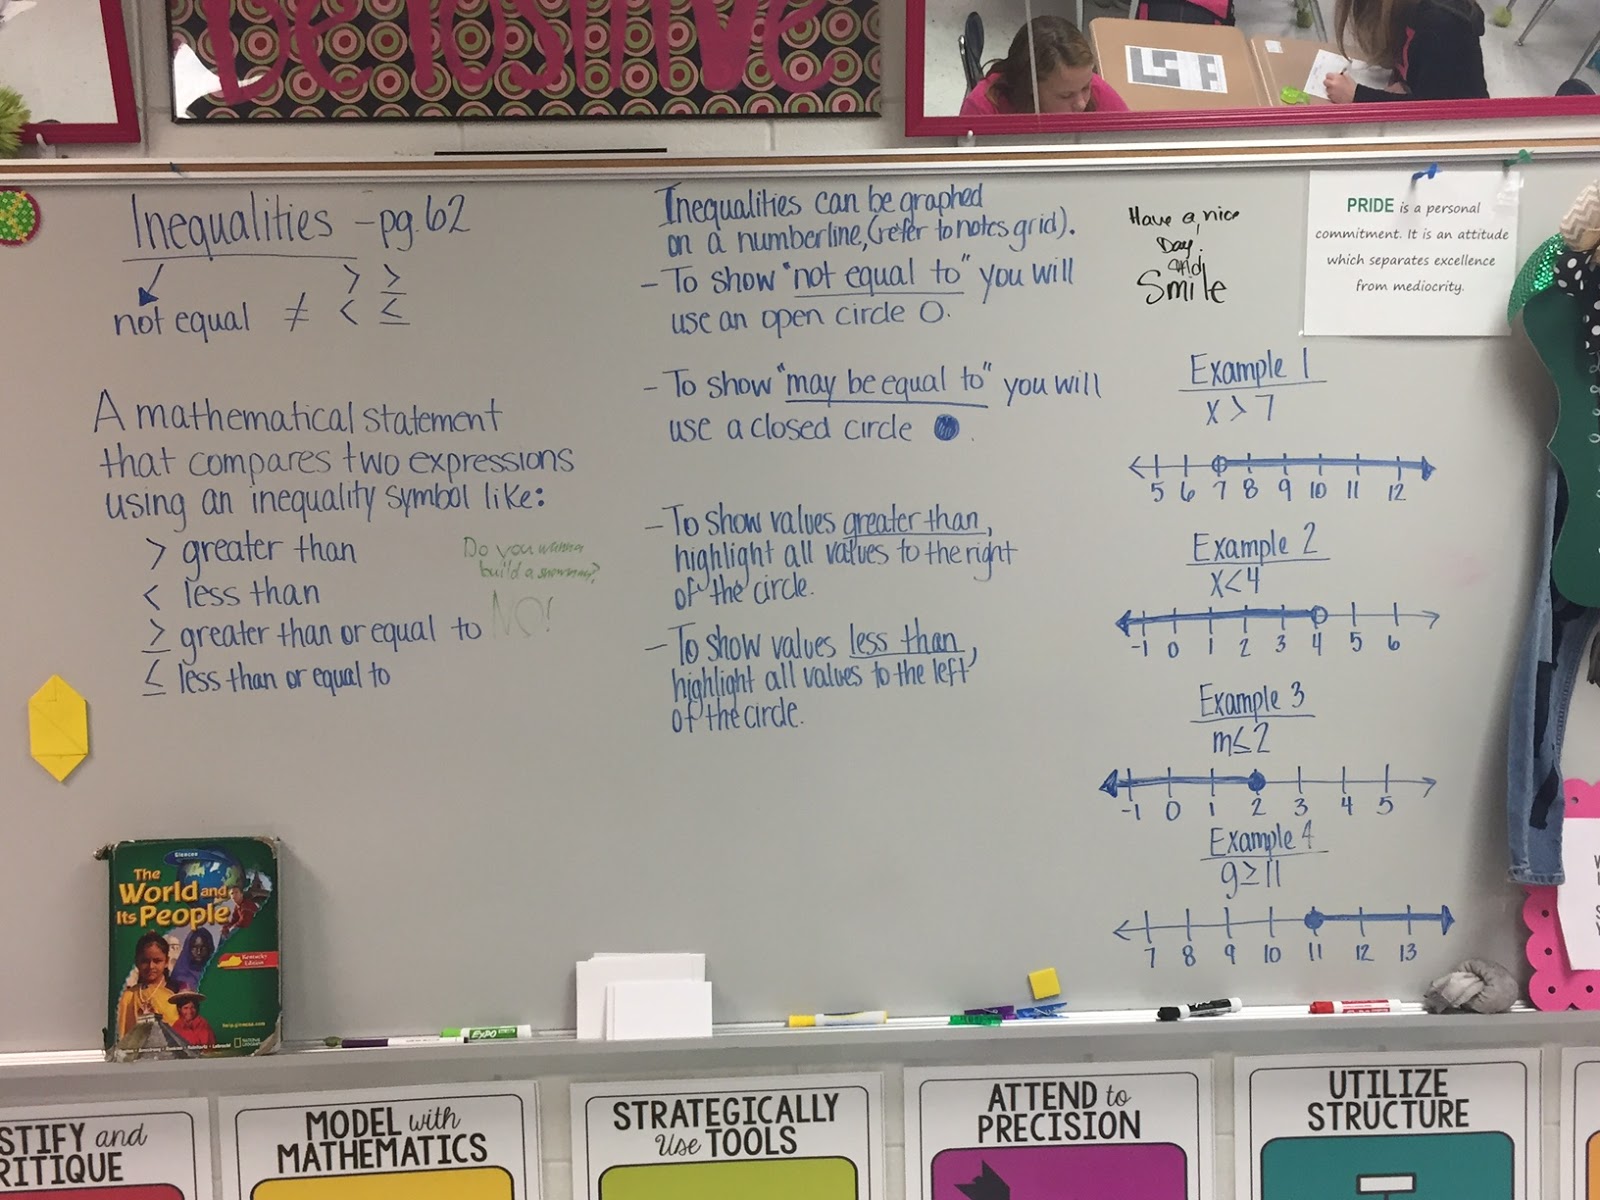 BE POSITIVE
Inequalities - pg. 62
> ≥
not equal ≠ < ≤
A mathematical statement
that compares two expressions
using an inequality symbol like:
> greater than
< less than
≥ greater than or equal to
≤ less than or equal to
Do you wanna
build a snowman?
NO!
Inequalities can be graphed
on a numberline, (refer to notes grid).
- To show "not equal to" you will
use an open circle O.
- To show "may be equal to" you will
use a closed circle ●.
- To show values greater than,
highlight all values to the right
of the circle.
- To show values less than,
highlight all values to the left
of the circle.
Have a nice
Day!
and
Smile
PRIDE is a personal
commitment. It is an attitude
which separates excellence
from mediocrity.
Example 1
x > 7
5 6 7 8 9 10 11 12
Example 2
x < 4
-1 0 1 2 3 4 5 6
Example 3
m ≤ 2
-1 0 1 2 3 4 5
Example 4
g ≥ 11
7 8 9 10 11 12 13
Glencoe
The
World and
Its People
Kentucky
Edition
NATIONAL
GEOGRAPHIC
EXPO
STIFY and
RITIQUE
MODEL with
MATHEMATICS
STRATEGICALLY
Use TOOLS
ATTEND to
PRECISION
UTILIZE
STRUCTURE